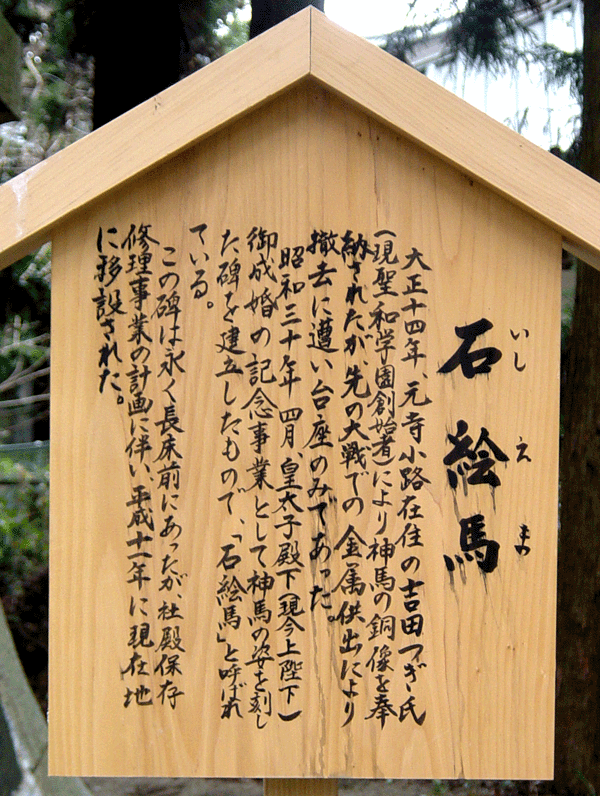 石絵馬
いしえま
大正十四年、元寺小路在住の吉田つぎ氏
(現聖和学園創始者)により神馬の銅像を奉
納されたが、先の大戦での金属供出により
撤去に遭い台座のみであった。
昭和三十年四月、皇太子殿下(現今上陛下)
御成婚の記念事業として神馬の姿を刻し
た碑を建立したもので、「石絵馬」と呼ばれ
ている。
この碑は永く長床前にあったが、社殿保存
修理事業の計画に伴い、平成十一年に現在地
に移設された。